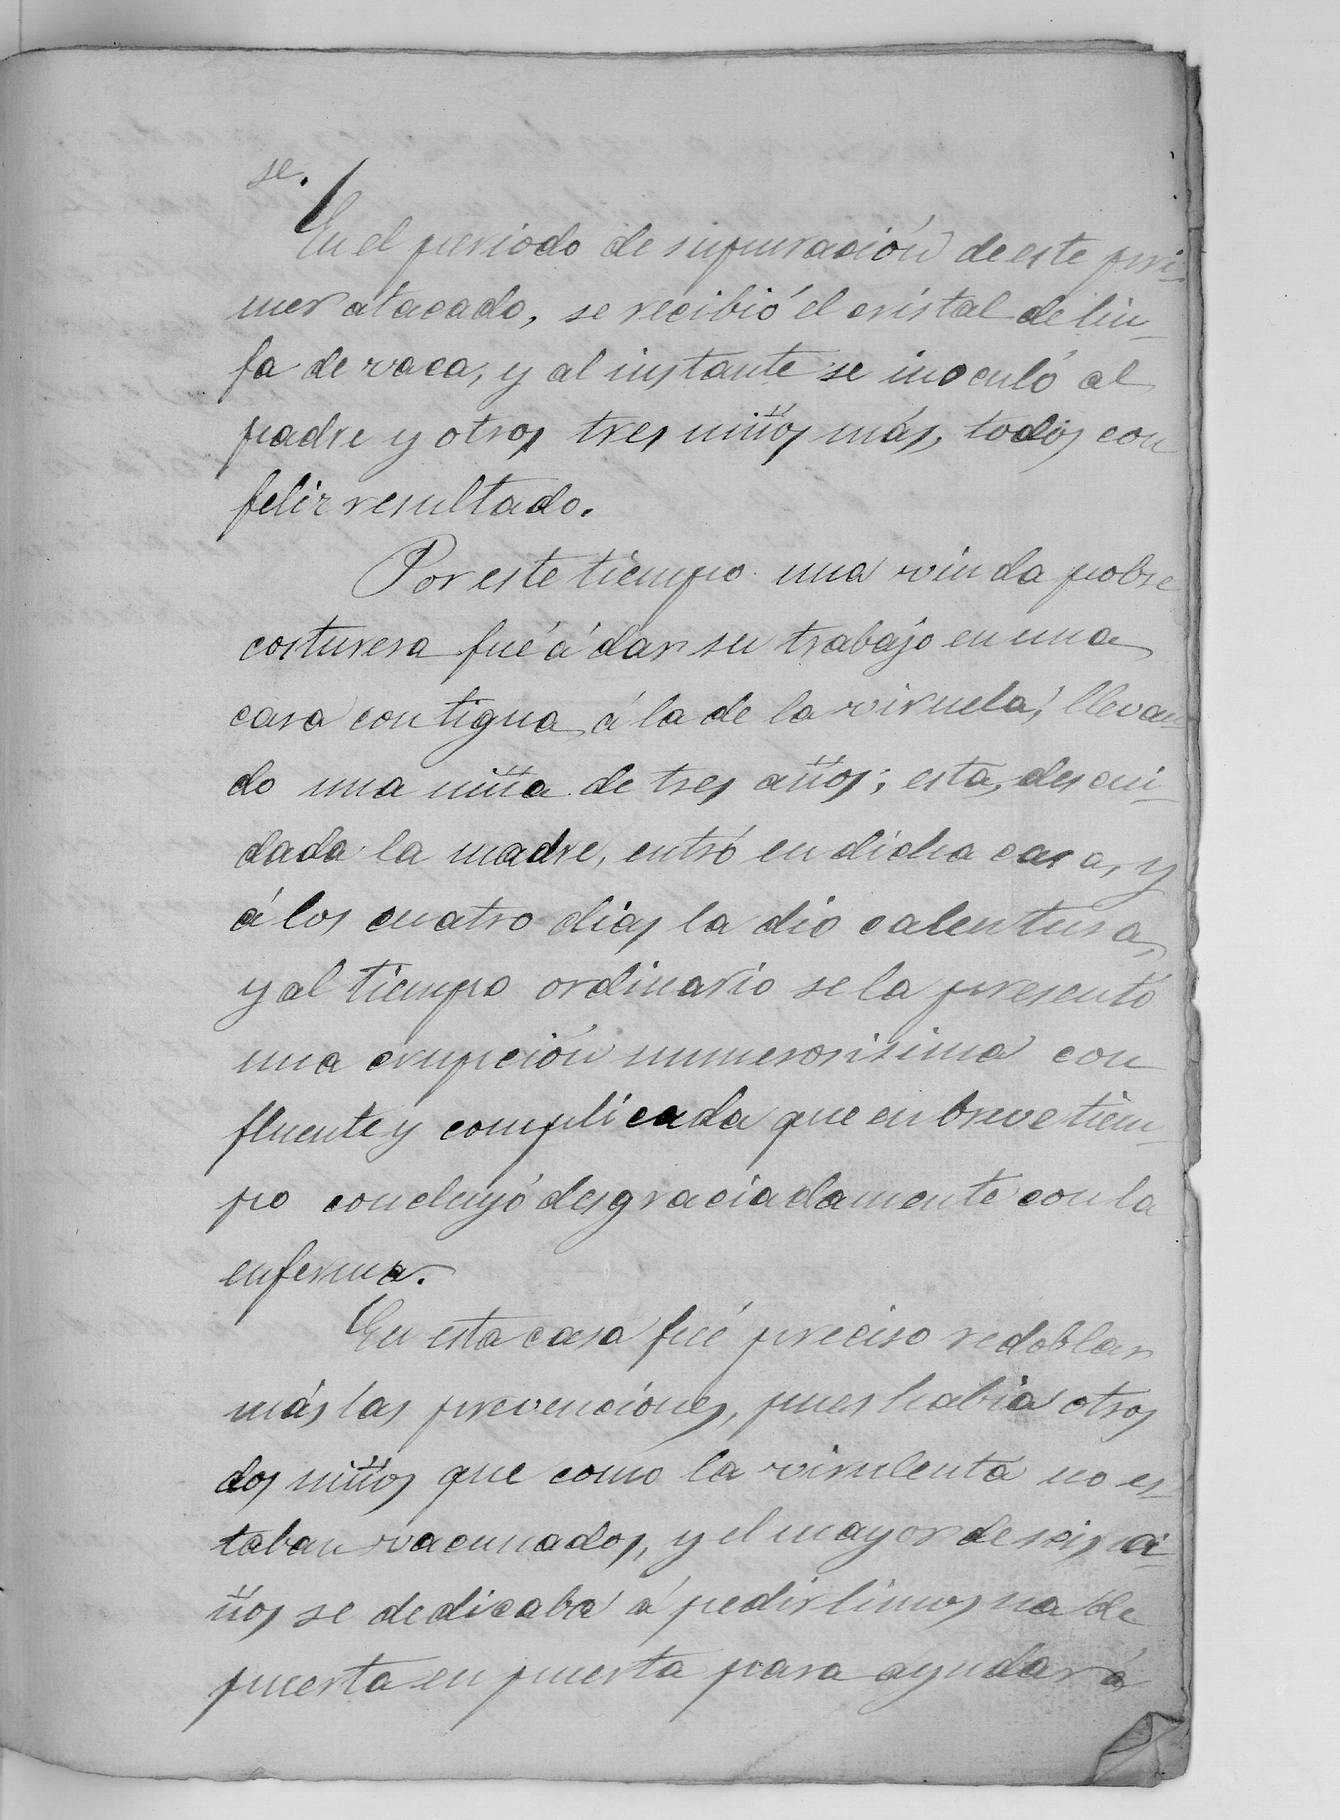 se.
En el periodo de supuración de este pri-
mer atacado, se recibió el cristal de lin-
fa de vaca, y al instante se inoculó al
padre y otros tres niños más, todos con
feliz resultado.
Por este tiempo una viuda pobre
costurera fué á dar su trabajo en una
casa contigua á la de la viruela, llevan-
do una niña de tres años; esta, descui-
dada la madre, entró en dicha casa, y
á los cuatro dias la dio calentura,
y al tiempo ordinario se la presentó
una erupción numerosisima con
fluente y complicada que en breve tiem-
po concluyó desgraciadamente con la
enferma.
En esta casa fué preciso redoblar
más las prevenciones, pues habia otros
dos niños que como la virulenta no es-
taban vacunados, y el mayor de seis a-
ños se dedicaba á pedir limosna de
puerta en puerta para ayudar á